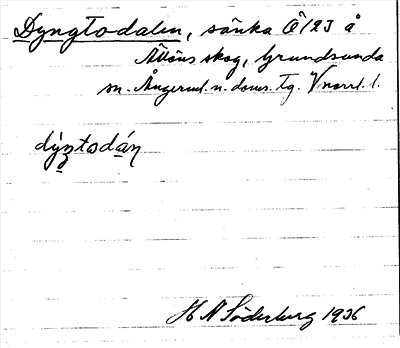 Dyngtodalen, sänka Ö 123 å
Ättöns skog, Grundsunda
sn. Ångerml. n. doms. Tg. Vnorrl. l.
dýŋtodáṇ
H N Söderberg 1936